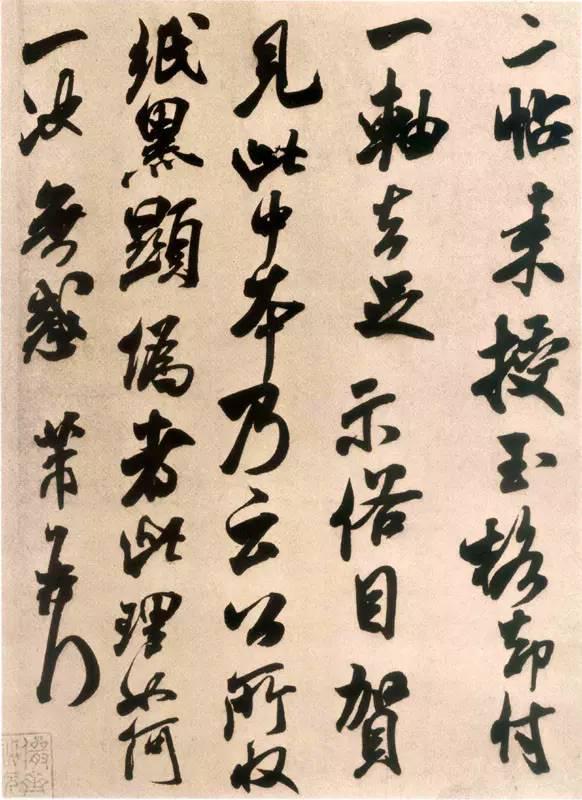 二帖来授玉格却付
一軸去足示俗目賀
見此中本乃云公所收
紙黑顯僞者此理如何
一決無惑芾頓首